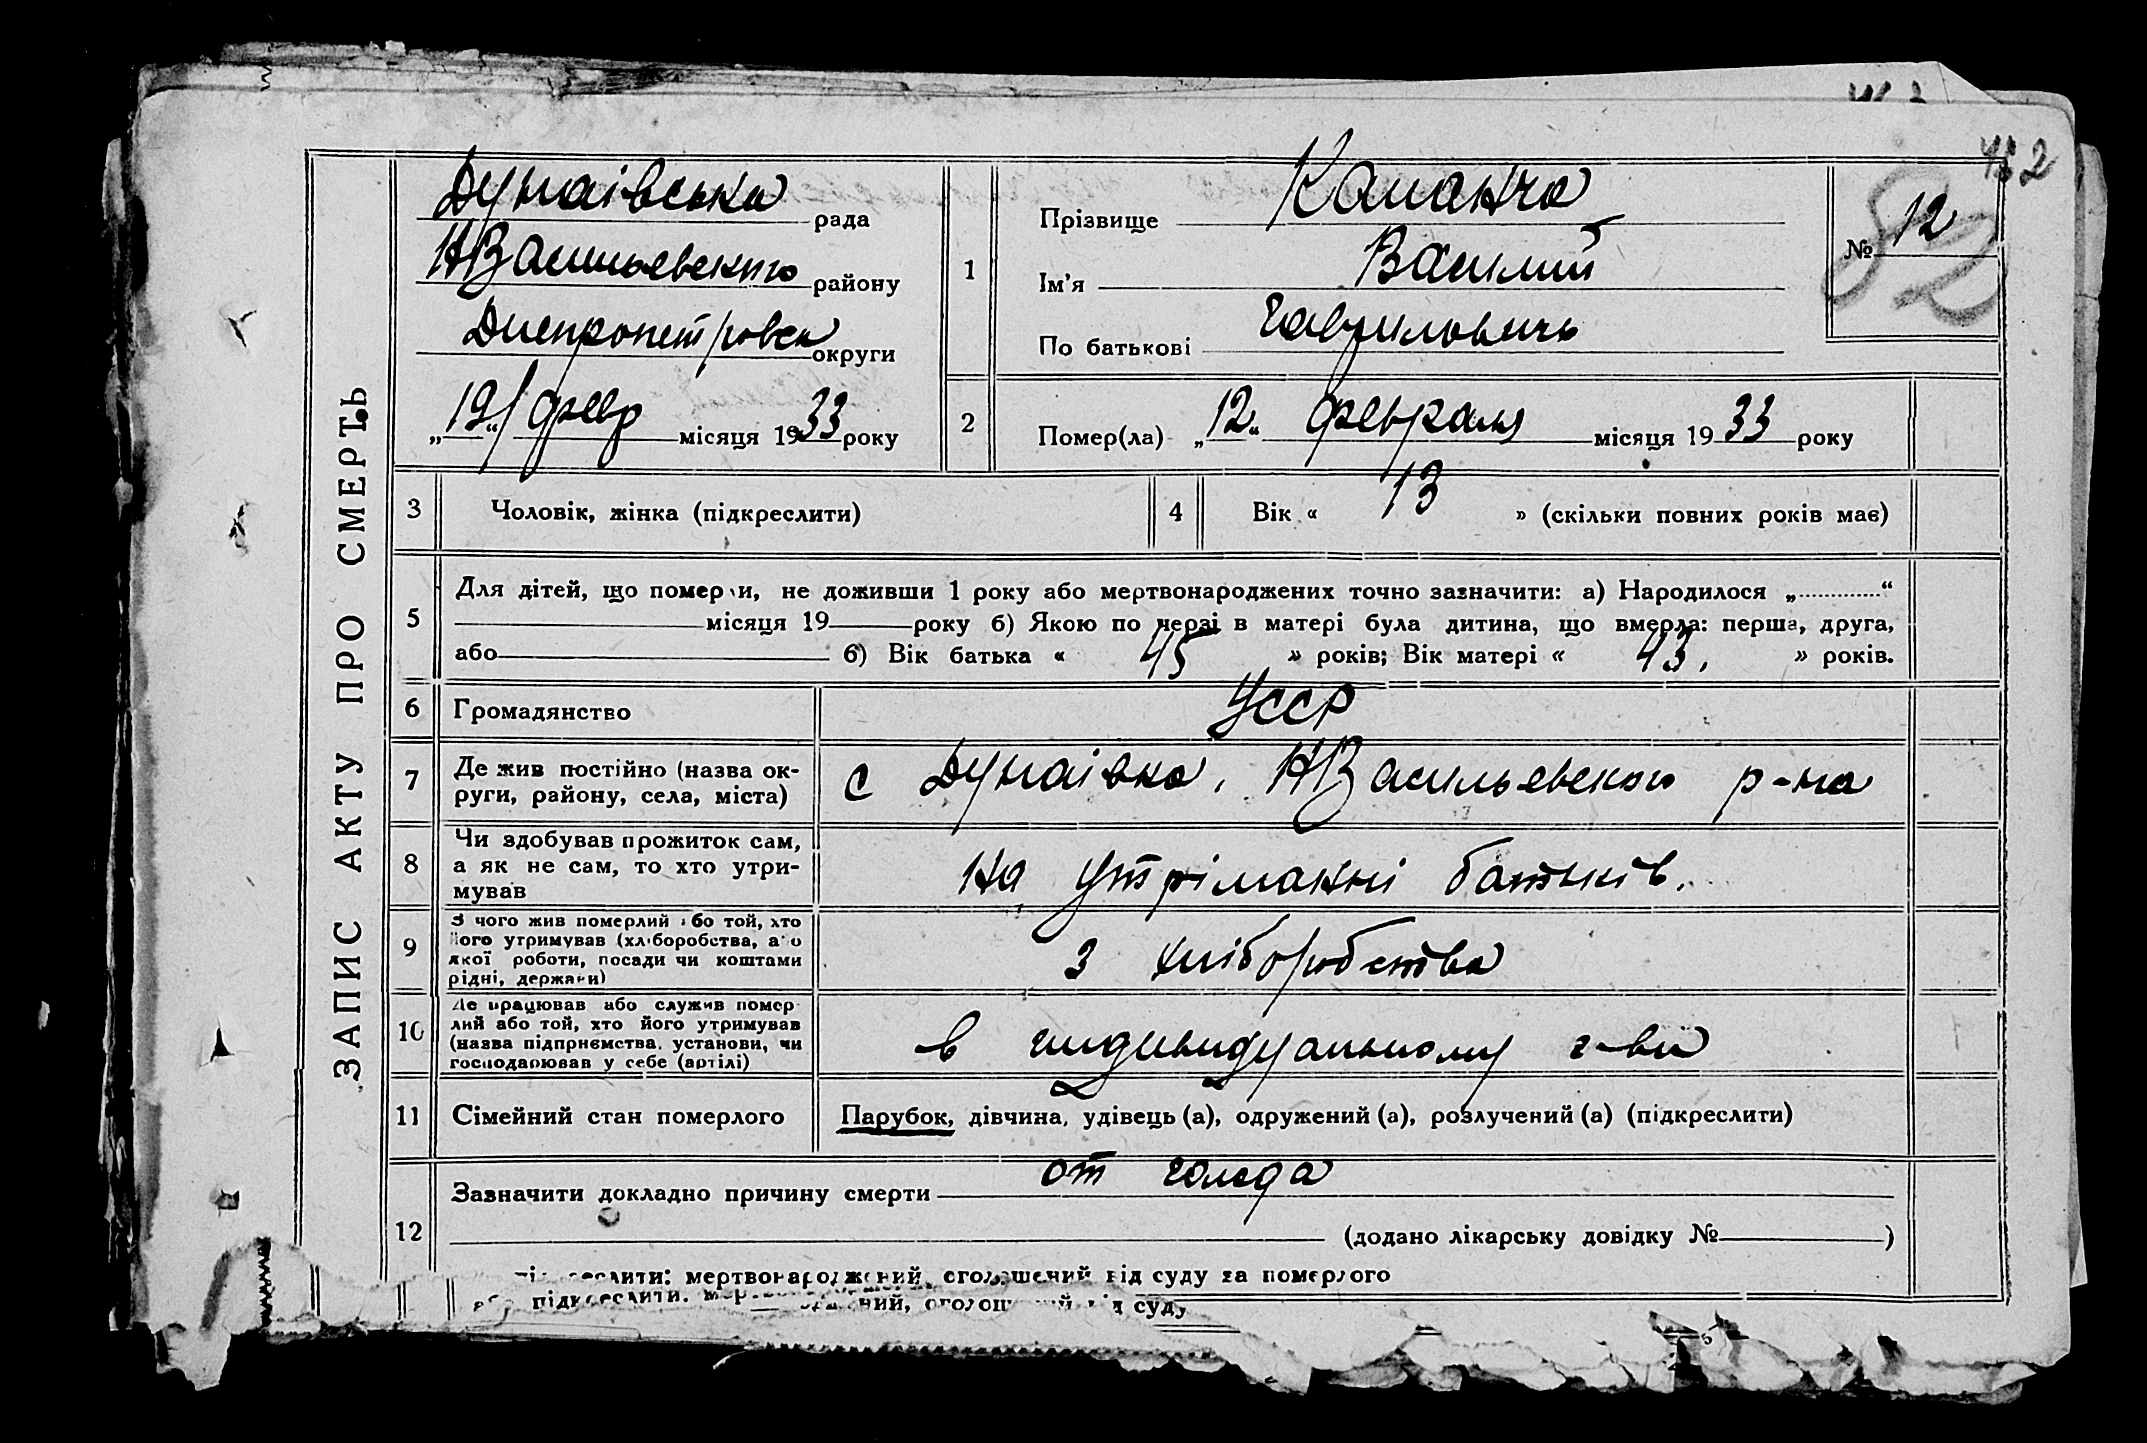 482
ЗАПИС АКТУ ПРО СМЕРТЬ
Дунаівська рада
НВасильевского району
Днепропетровск округи
„19“ февр місяця 1933 року
1
Прізвище Каманча
Ім'я Василий
По батькові Гаврилович
№ 12
82
2
Помер(ла) „12“ февраля місяця 1933 року
3 Чоловік, жінка (підкреслити)
4 Вік « 13 » (скільки повних років має)
5 Для дітей, що померли, не доживши 1 року або мертвонароджених точно зазначити: а) Народилося „ “
місяця 19 року б) Якою по черзі в матері була дитина, що вмерла: перша, друга,
або б) Вік батька « 45 » років; Вік матері « 43, » років.
6 Громадянство УССР
7 Де жив постійно (назва ок-
руги, району, села, міста)
с Дунаівка, НВасильевского р-на
8 Чи здобував прожиток сам,
а як не сам, то хто утри-
мував
На утріманні батьків.
9 З чого жив померлий або той, хто
його утримував (хліборобства, або
якої роботи, посади чи коштами
рідні, держави)
З хліборобства
10 Де працював або служив помер-
лий або той, хто його утримував
(назва підприємства, установи, чи
господарював у себе (артілі)
в индивидуальному г-ві
11 Сімейний стан померлого Парубок, дівчина, удівець (а), одружений (а), розлучений (а) (підкреслити)
12 Зазначити докладно причину смерти от голода
(додано лікарську довідку № )
мертвонароджений, оголошений від суду за померлого
підкреслити: оголошений від суду